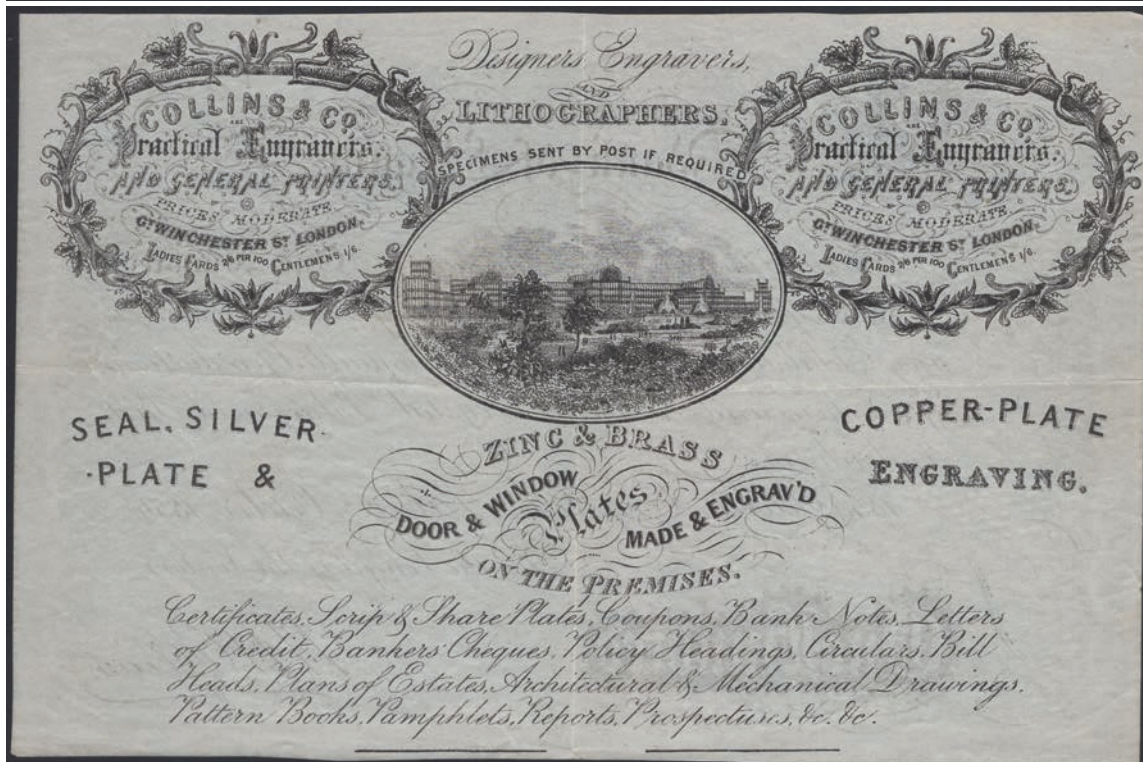 COLLINS & CO.
Practical Engravers.
AND GENERAL PRINTERS,
PRICES MODERATE
GT. WINCHESTER ST. LONDON.
LADIES CARDS 2/6 PER 100 GENTLEMENS 1/6.
Designers, Engravers,
AND
LITHOGRAPHERS.
SPECIMENS SENT BY POST IF REQUIRED
COLLINS & CO.
Practical Engravers.
AND GENERAL PRINTERS,
PRICES MODERATE
GT. WINCHESTER ST. LONDON.
LADIES CARDS 2/6 PER 100 GENTLEMENS 1/6.
SEAL, SILVER-
-PLATE &
COPPER-PLATE
ENGRAVING.
ZINC & BRASS
DOOR & WINDOW
Plates
MADE & ENGRAV'D
ON THE PREMISES.
Certificates, Scrip & Share Plates, Coupons, Bank Notes, Letters
of Credit, Bankers' Cheques, Policy Headings, Circulars, Bill
Heads, Plans of Estates, Architectural & Mechanical Drawings.
Pattern Books, Pamphlets, Reports, Prospectuses, &c. &c.